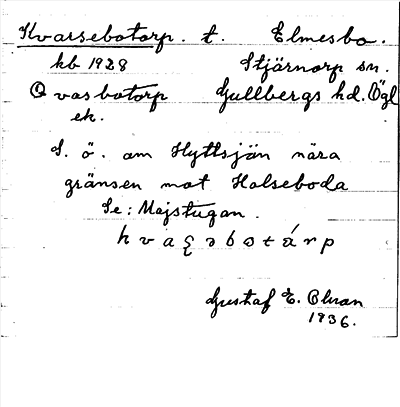 Kvarsebotorp. t. Elmesbo.
kb 1928 Stjärnorp sn.
Qvasbotorp Gullbergs hd. Ögl
ek.
S. ö. om Hyttsjön nära
gränsen mot Holseboda
Se: Majstugan.
Gustaf E.
1936.